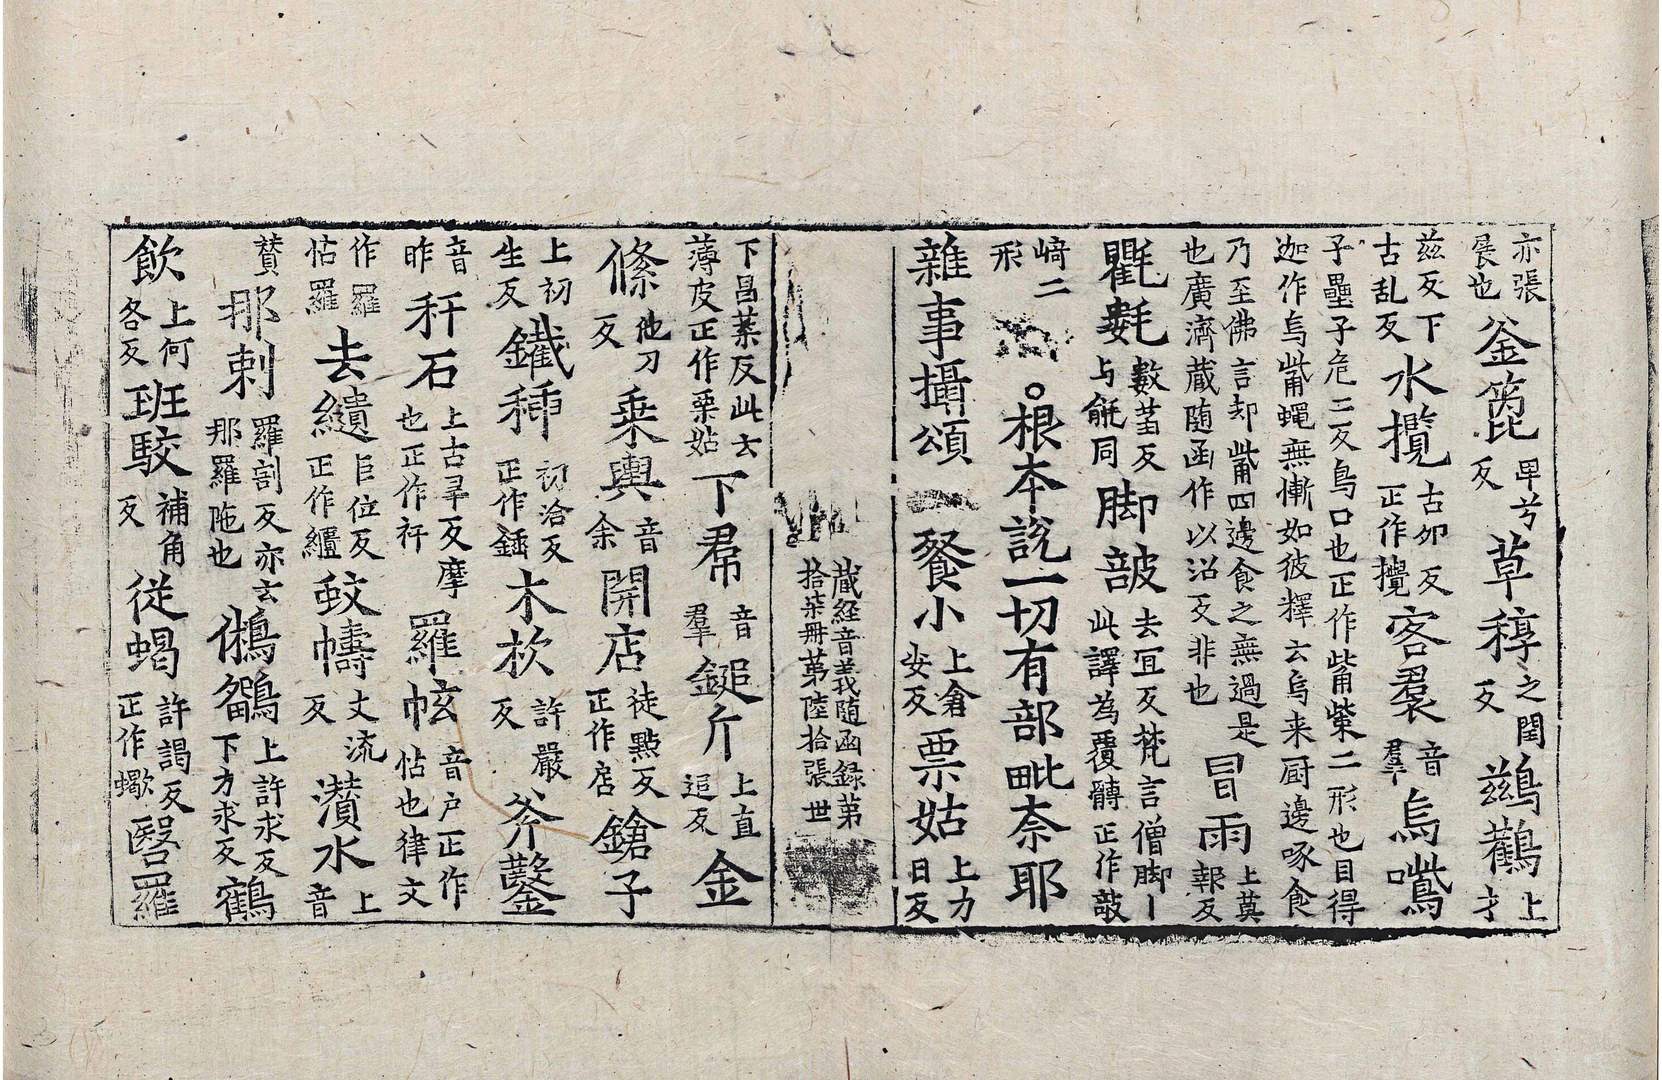 亦張展也釜箆卑兮反草稕之閏反鷀鸛上才
兹反下古乱反水攬古夘反正作攪客羣音羣烏嘴
子壘子危二反鳥口也正作觜㭰二形也目得
迦作烏觜蠅無慚如彼釋云烏来厨邊啄食
乃至佛言却觜四邊食之無過是
也廣濟蔵随函作以沼反非也冒雨上莫報反
氍㲣数蒭反与毹同脚䟦去冝反梵言僧脚丨此譯為覆髆正作敧
崎二形。根本說一切有部毗奈耶
雜事攝頌一餐小上倉安反票姑上力日反
蔵経音義随函録第
拾柒冊第陸拾張世
下昌葉反此云薄皮正作栗姑下帬音羣鎚斤上直追反金
絛他刀反乗輿音余開店徒㸃反正作㡯鎗子
上初生反鐵䅜初洽反正作鍤木杴許嚴反斧鑿
音昨秆石上古旱反摩也正作衦羅㡉音户正作怙也律文
作羅怙羅去繢巨位反正作繼蚊幬丈流反濽水上音
賛那剌羅割反亦云那羅陁也鵂鶹上許求反下力求反鶴
飲上何各反班駮補角反従蝎許謁反正作蠍毉羅